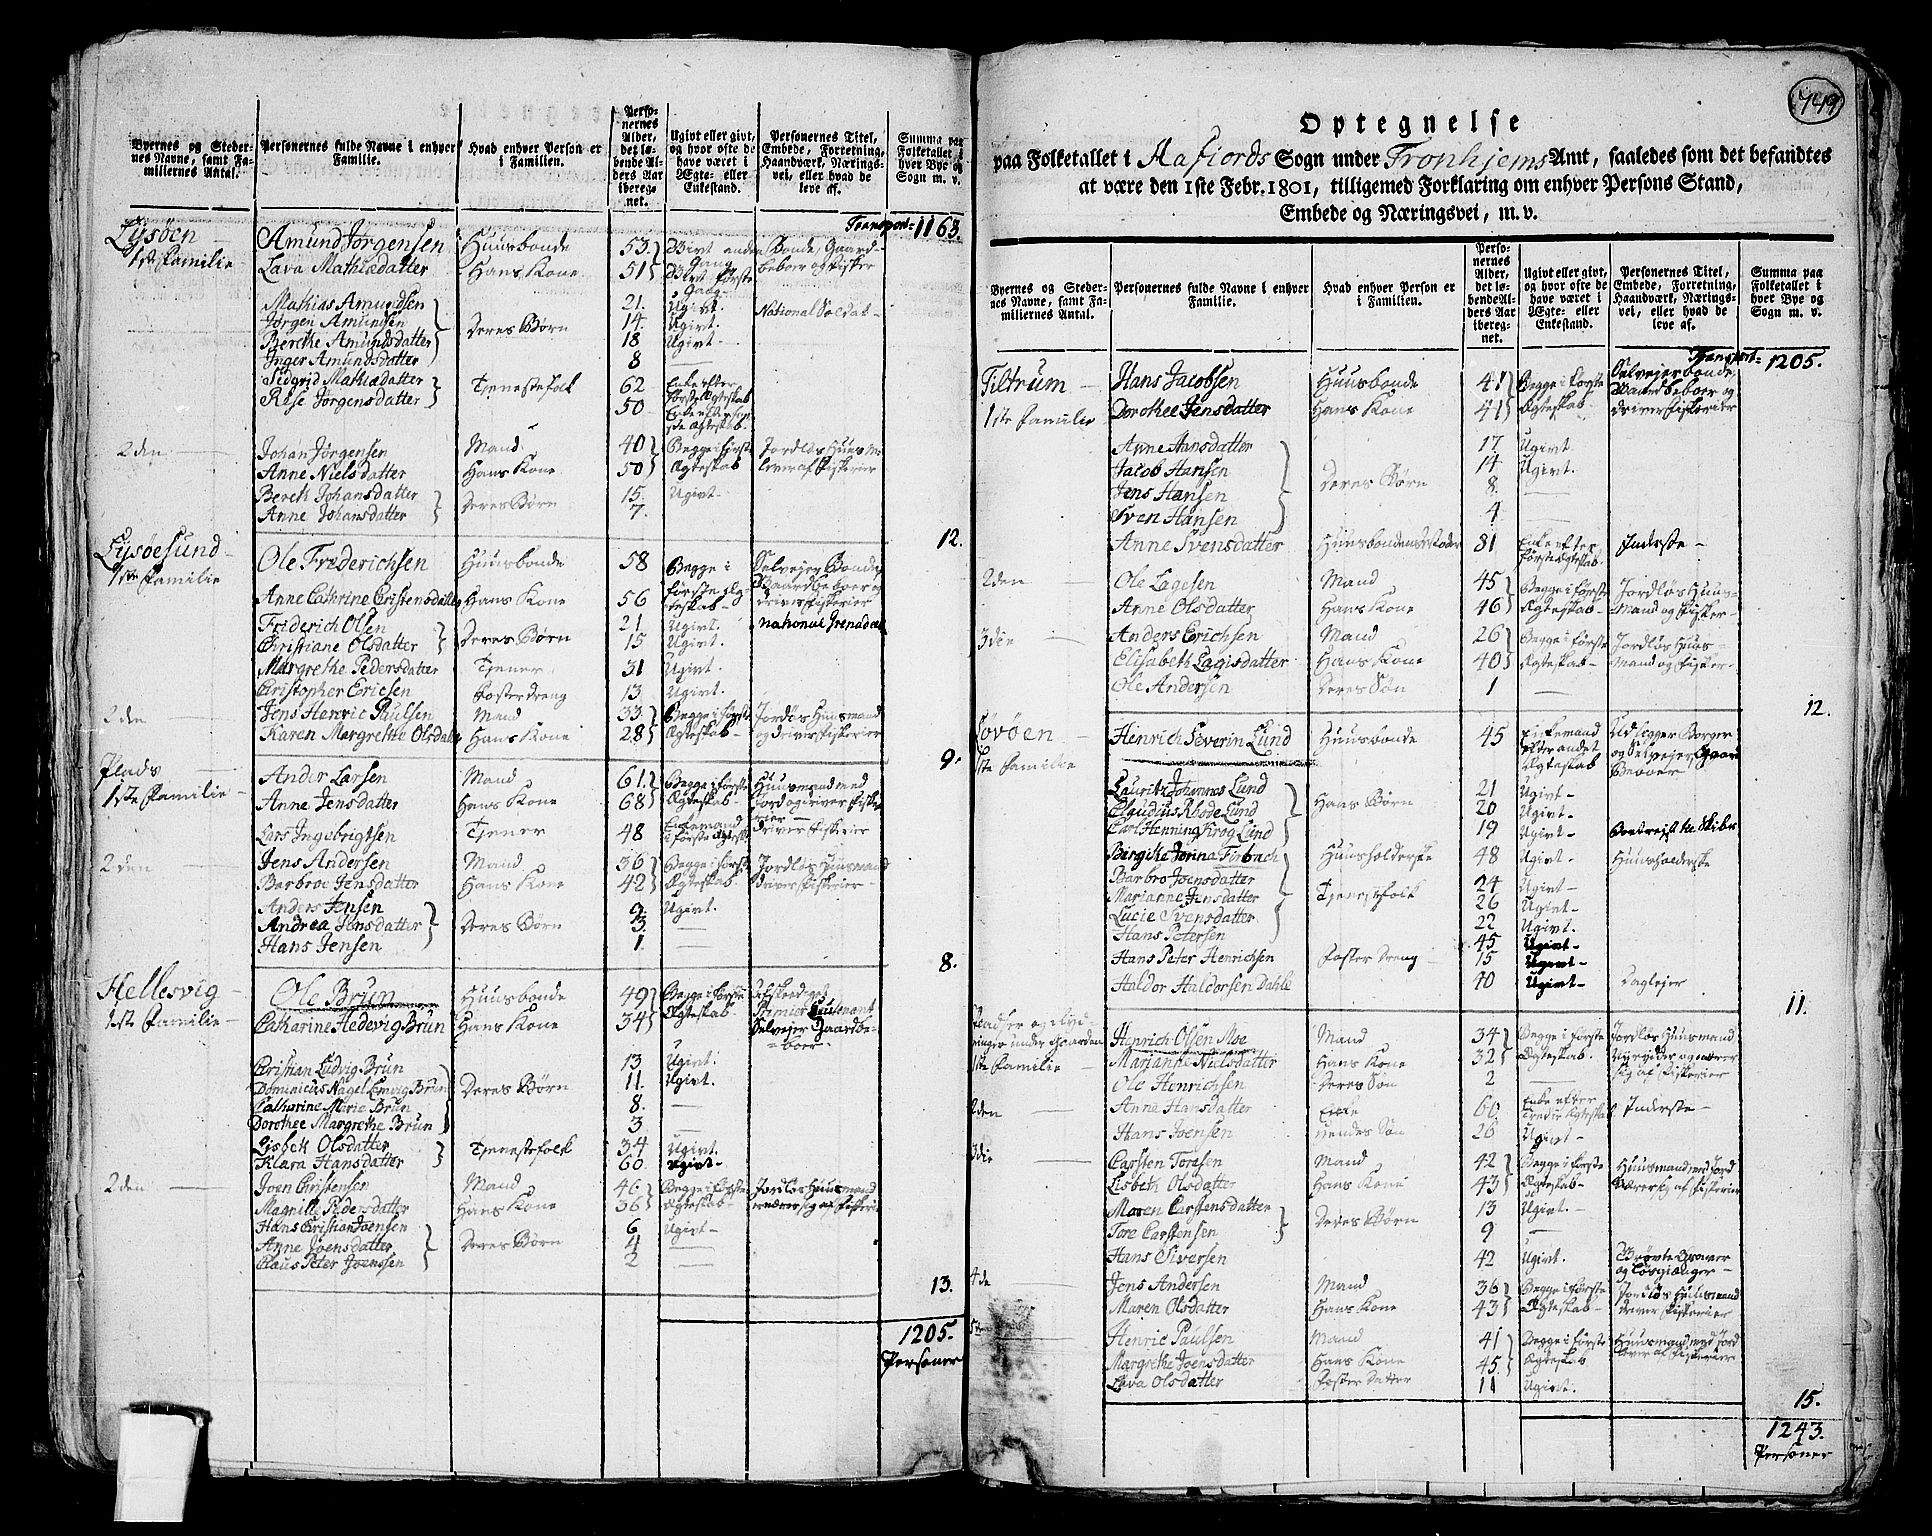 Byernes og Stedernes Navne, samt Familiernes Antal. | Personernes fulde Navne i enhver Familie. | Hvad enhver Person er i Familien. | Personernes Alder, det løbende Alders Aar iberegnet. | Ugivt eller givt, og hvor ofte de have været i Ægte- eller Enkestand. | Personernes Titel, Embede, Forretning, Haandværk, Næringsvei, eller hvad de leve af. | Summa paa Folketallet i hver Bye og Sogn m. v.
Transport= 1163.
Lysøen 1ste Familie | Amund Jørgensen | Huusbonde | 53 | Givt anden Gang | Bonde, Gaardbeboer og Fisker
Lava Mathisdatter | Hans Kone | 51 | Givt første Gang
Mathias Amundsen | Deres Børn | 21. | Ugivt. | National Soldat
Jørgen Amundsen | 14. | Ugivt.
Berethe Amundsdatter | 18 | Ugivt.
Inger Amundsdatter | 8
Sidgrid Mathisdatter | Tjenestefolk | 62 | Enke efter første Ægteskab
Rese Jørgensdatter | 50
2den | Johan Jørgensen | Mand | 40 | Begge i første Ægteskab | Jordløs Huusm: lever af Fiskerier
Anne Nielsdatter | Hans Kone | 50
Bereth Johansdatter | Deres Børn | 15. | Ugivt
Anne Johansdatter | 7.
12.
Lysøesund 1ste Familie | Ole Frederichsen | Huusbonde | 58 | Begge i første Ægteskab | Selvejer Bonde, Gaardbeboer og driver Fiskerier
Anne Cathrine Cristensdatter | Hans Kone | 56
Friderich Olsen | Deres Børn | 21. | Ugivt. | national Grenadeer
Christiane Olsdatter | 15 | Ugivt.
Margrethe Pedersdatter | Tjener | 31 | Ugivt
Christopher Ericsen | Fosterdreng | 13 | Ugivt.
2den | Jens Henric Paulsen | Mand | 33 | Begge i første Ægteskab | Jordløs Huusmand og driver Fiskerier
Karen Margrethe Olsdatter | Hans Kone | 28
9.
Plads 1ste Familie | Ander Larsen | Mand | 61. | Begge i første Ægteskab | Huusmand med Jord og driver Fiskerier
Anne Jensdatter | Hans Kone | 68
Lars Ingebrigtsen | Tjener | 48 | Enkemand i første Ægtesk: | driver Fiskerier
2den | Jens Andersen | Mand | 36 | Begge i første Ægteskab | Jordløs Huusmand driver Fiskerier
Barbroe Jensdatter | Hans Kone | 42
Anders Jensen | Deres Børn | 9 | Ugivt.
Andrea Jensdatter | 3
Hans Jensen | 1.
8.
Hellesvig 1ste Familie | Ole Brun | Huusbonde | 49 | Begge i første Ægteskab | Afskeediged Premier Lieutenant Selvejer Gaardbeboer
Catharine Hedevig Brun | Hans Kone | 34
Christian Ludvig Brun | Deres Børn | 13 | Ugivt.
Dominicus Nagel Lemvig Brun | 11. | Ugivt.
Catharine Marie Brun | 8.
Dorothee Margrethe Brun | 3
Lisbeth Olsdatter | Tjenestefolk | 34 | Ugivt.
Klara Hansdatter | 60. | Ugivt
2den | Joen Christensen | Mand | 46 | Begge i første Ægteskab | Jordløs Huusmand nærer sig af Fiskerie
Magnille Pedersdatter | Hans Kone | 36
Hans Christian Joensen | Deres Børn | 6 | Ugivt
Anne Joensdatter | 4
Claus Peter Joenssen | 2
13.
1205. Personer
749
Optegnelse
paa Folketallet i Aafiords Sogn under Tronhjems Amt, saaledes som det befandtes
at være den 1ste Febr. 1801, tilligemed Forklaring om enhver Persons Stand,
Embede og Næringsvei, m. v.
Byernes og Stedernes Navne, samt Familiernes Antal. | Personernes fulde Navne i enhver Familie. | Hvad enhver Person er i Familien. | Personernes Alder, det løbende Alders Aar iberegnet. | Ugivt eller givt, og hvor ofte de have været i Ægte- eller Enkestand. | Personernes Titel, Embede, Forretning, Haandværk, Næringsvei, eller hvad de leve af. | Summa paa Folketallet i hver Bye og Sogn m. v.
Transport= 1205.
Tiltrum 1ste Familie | Hans Jacobsen | Huusbonde | 41 | Begge i første Ægteskab | Selvejer bonde, Gaardbeboer og driver Fiskerier
Dorothee Jensdatter | Hans Kone | 41
Anne Hansdatter | Deres Børn | 17 | Ugivt
Jacob Hansen | 14 | Ugivt.
Jens Hansen | 8.
Sven Hansen | 4
Anne Svensdatter | Huusbondens Moder | 81 | Enke efter første Ægteskab | Inderste
2den | Ole Lagesen | Mand | 45 | Begge i første Ægteskab | Jordløs Huusmand og Fisker
Anne Olsdatter | Hans Kone | 46
3die | Anders Erichsen | Mand | 26 | Begge i første Ægteskab | Jordløs Huusmand og Fisker
Elisabeth Lagisdatter | Hans Kone | 40
Ole Andersen | Deres Søn | 1
12.
1ste Familie | Henrich Severin Lund | Huusbonde | 45 | Enkemand efter andet Ægteskab | Udligger Borger og Selvejer Gaard Beboer
Lauritz Johannes Lund | Hans Børn | 21 | Ugivt
Claudius Rhode Lund | 20 | Ugivt
Carl Henning Krog Lund | 19 | Ugivt | Bortrejst til Skibs
Bergithe Jonna Firbach | Huusholderske | 48 | Ugivt | Huusholderske
Barbro Joensdatter | Tjenestfolk | 24 | Ugivt
Marianne Jensdatter | 26 | Ugivt
Lucie Svensdatter | 22 | Ugivt.
Hans Petersen | 45 | Ugivt
Hans Peter Henrichsen | Foster Dreng | 15 | Ugivt
Haldor Haldorsen Dahle | 40 | Ugivt | Daglejer
11.
Pladser og Rydninger under Gaarden 1ste Familie | Henrich Olsen Moe | Mand | 34 | Begge i første Ægteskab. | Jordløs Huusmand Nyrydder og nærer sig af Fiskerier
Marianne Nielsdatter | Hans Kone | 32
Ole Henrichsen | Deres Søn | 2
2den | Anne Hansdatter | Enke | 60 | Enke efter tredie Ægteskab | Inderste
Hans Joensen | Hendes Søn | 26 | Ugivt
3die | Carsten Toresen | Mand | 42 | Begge i første Ægteskab | Huusmand med Jord Nærer sig af Fiskerier
Lisbeth Olsdatter | Hans Kone | 43
Maren Carstensdatter | Deres Børn | 13 | Ugivt.
Tore Carstensen | 9
Hans Siversen | 42 | Ugivt. | og Løsgiænger
4de | Jens Andersen | Mand | 36 | Begge i første Ægteskab | Jordløs Huusmand driver Fiskerier
Maren Olsdatter | Hans Kone | 43
5te | Henric Paulsen | Mand | 41 | Begge i første Ægteskab | Huusmand med Jord Lever af Fiskerier
Margrethe Joensdatter | Hans Kone | 45
Lava Olsdatter | Foster Datter | 11 | Ugivt.
15.
1243. Personer